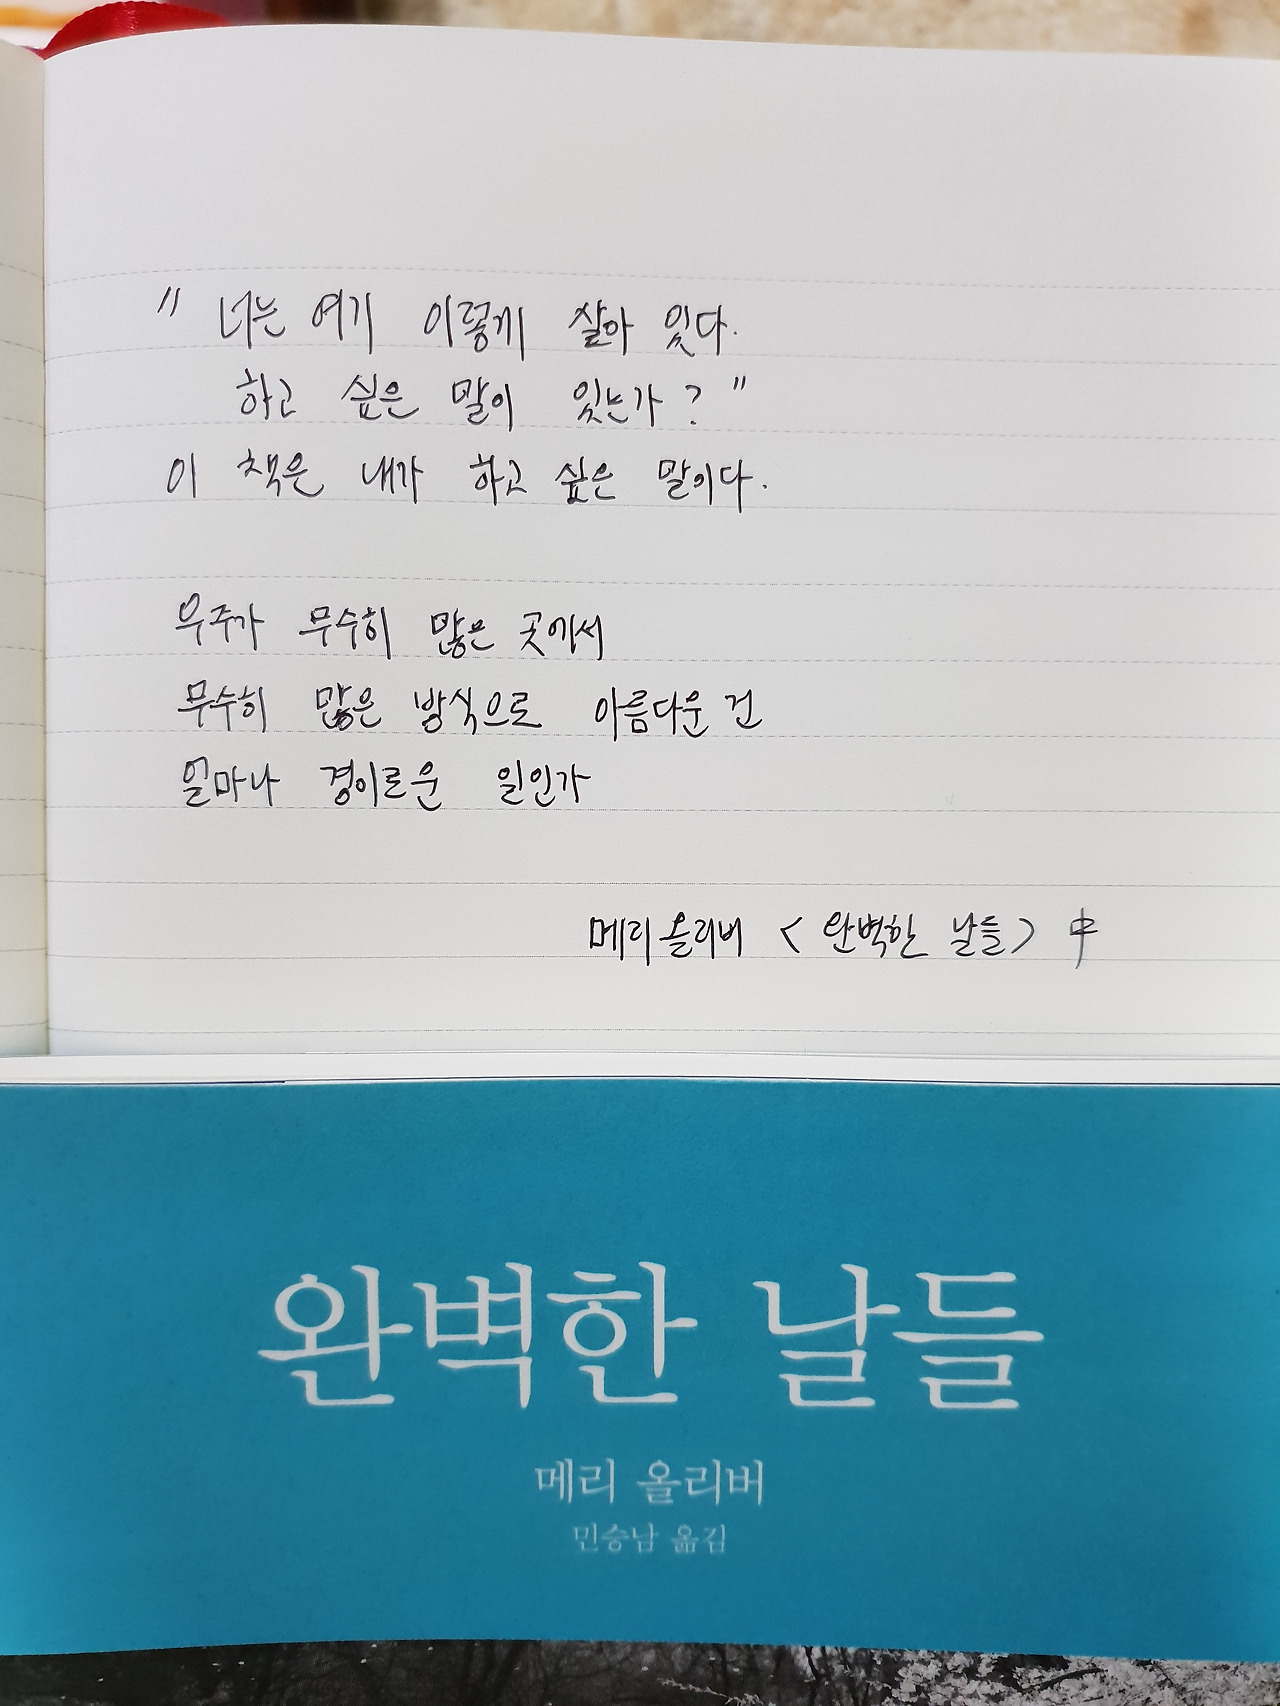 " 너는 여기 이렇게 살아 있다.
하고 싶은 말이 있는가? "
이 책은 내가 하고 싶은 말이다.
우주가 무수히 많은 곳에서
무수히 많은 방식으로 아름다운 건
얼마나 경이로운 일인가
메리 올리버 < 완벽한 날들 > 中
완벽한 날들
메리 올리버
민승남 옮김